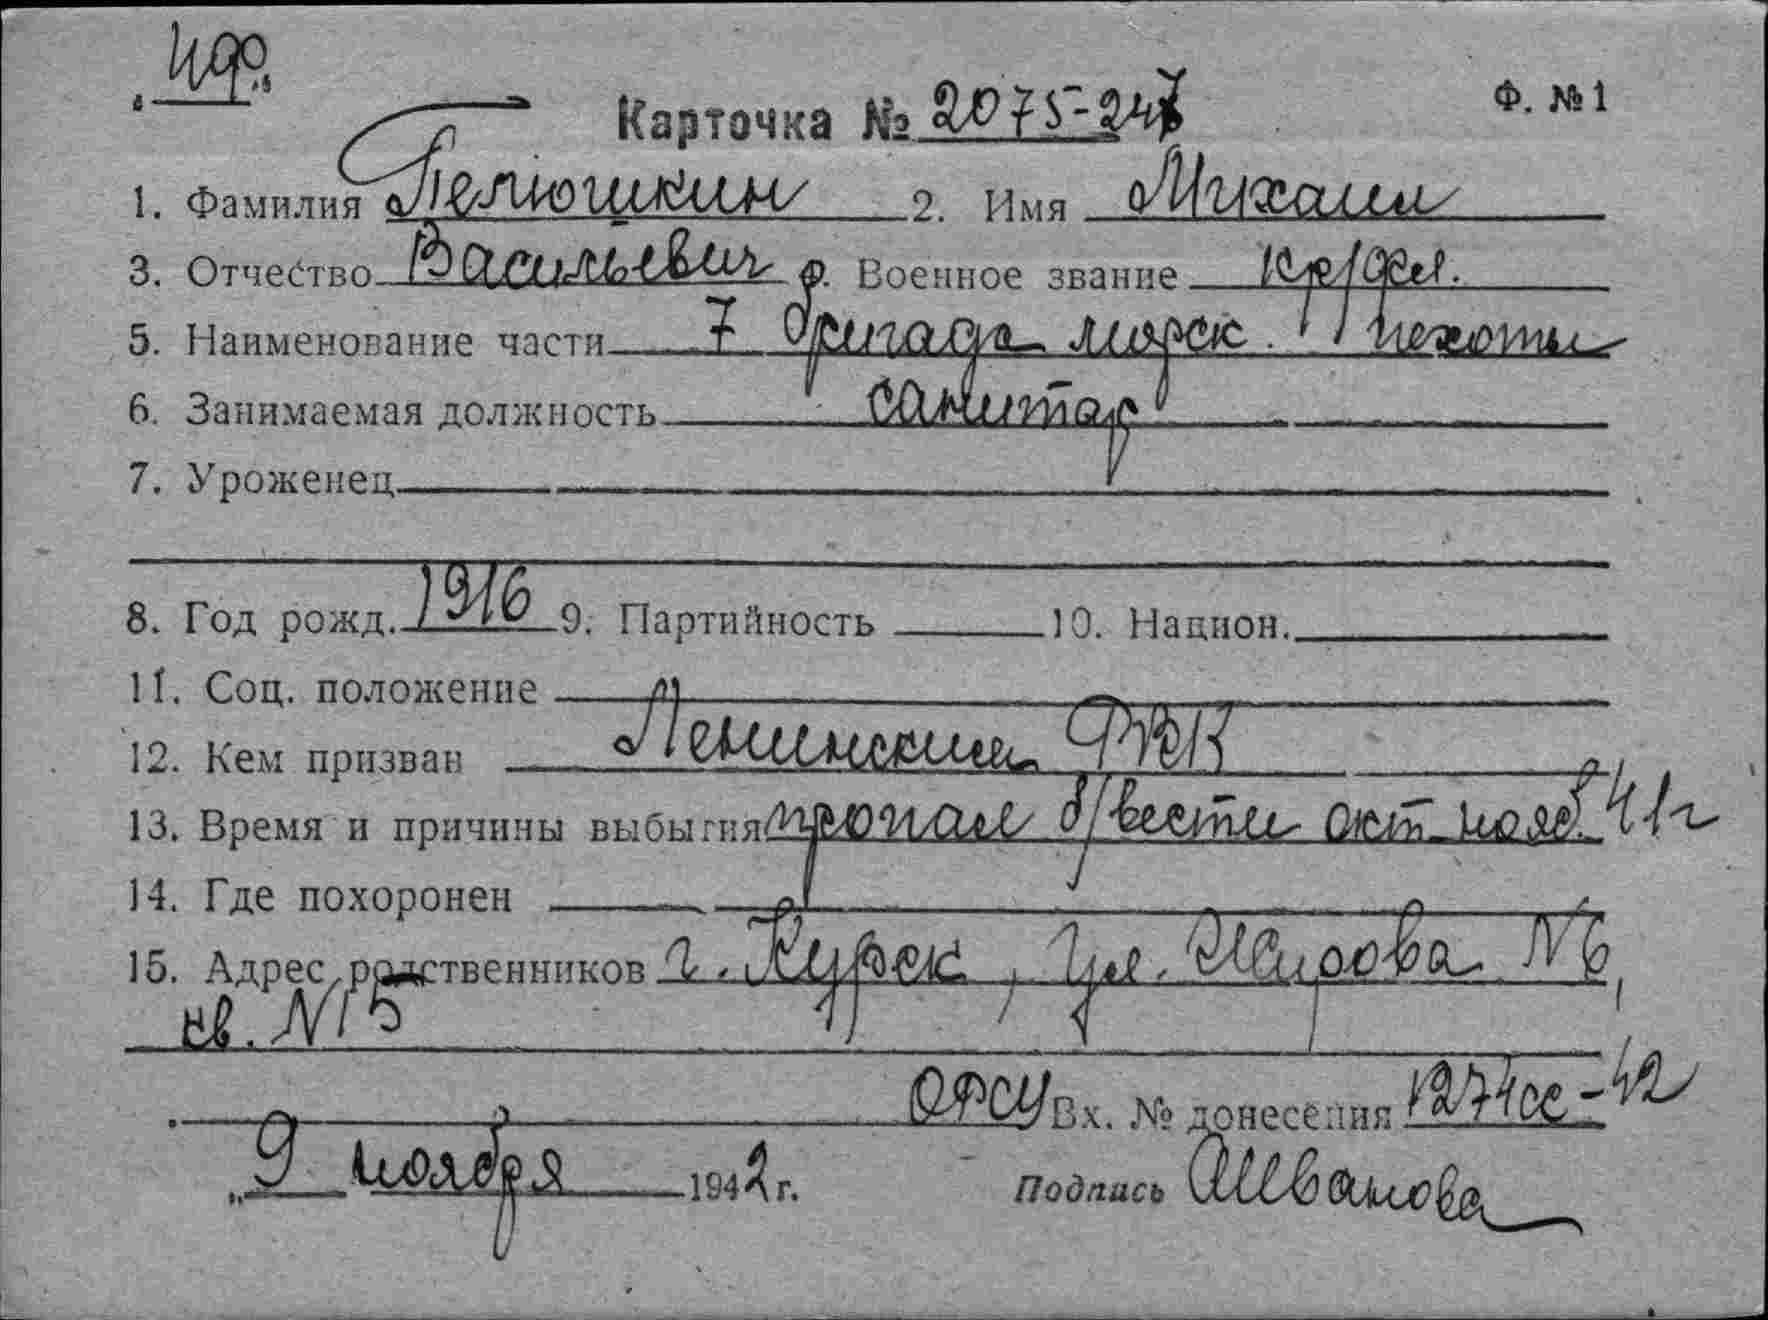 Карточка № 2075-247 Ф. №1
1. Фамилия Пелюшкин 2. Имя Михаил
3. Отчество Васильевич Военное звание
5. Наименование части 7 бригада морск. пехоты
6. Занимаемая должность санитар
7. Уроженец
8. Год рожд. 1916 9. Партийность 10. Национ.
11. Соц. положение
12. Кем призван Ленинским РВК
13. Время и причины выбытия пропал б/вести окт-нояб. 41г
14. Где похоронен
15. Адрес родственников г. Курск, ул. Кирова №6,
кв. №15
ОРСУ Вх. № донесения 1274сс-42
„ 9 ноября 1942 г. Подпись